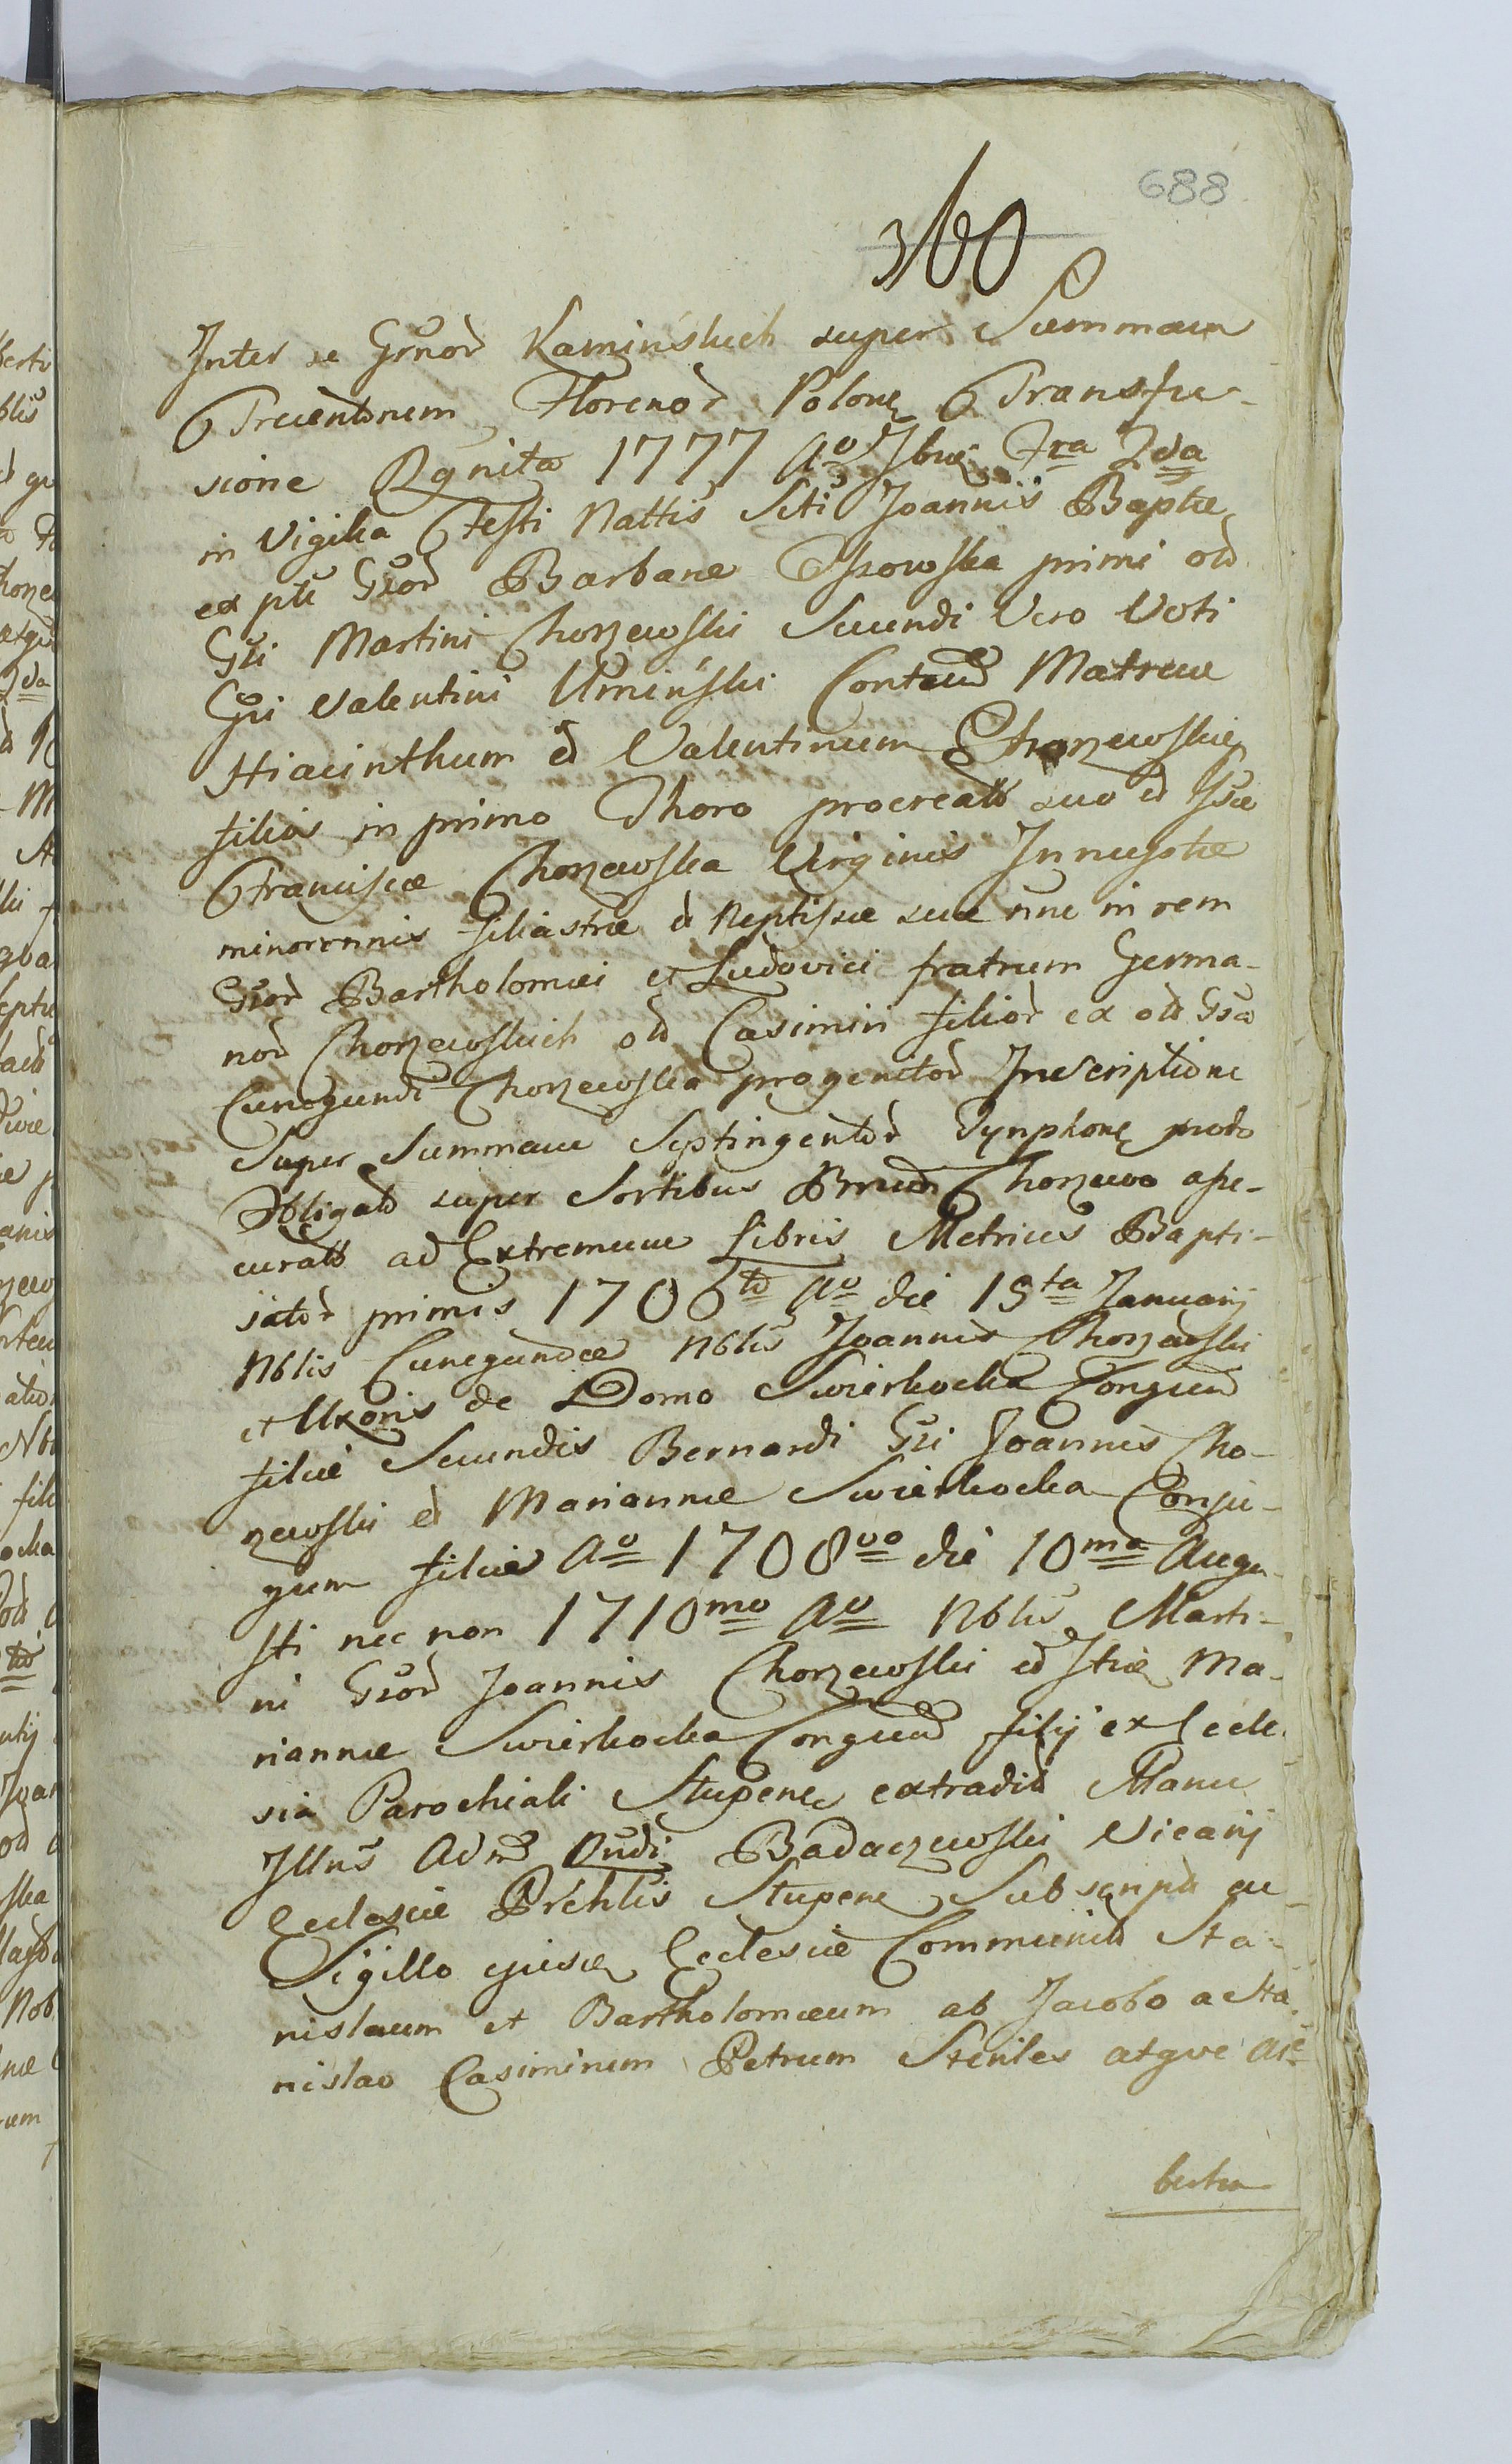 688
360
Inter se Grnor Kamińskich super Summam
Trecentorum Florenor Polonę Transfu-
sione Rgnita 1777 Ao Ibiq Fra 2da
in Vigilia Festi Nattis Scti Joannis Baptae
ex pte Gsor Barbarae Ossowska primi old
Gsi Martini Chorzewski Secundi Vero Voti
Gsi Valentini Umiński Contaud Matrem
Hiacinthum et Valentinum Chorzewskie
filios in primo Thoro procreatt suo et Gsae
Franciscae Chorzewska Virginis Innuptae
minorennis filiastrae et Neptissae suae nunc in rem
Gsor Bartholomei et Ludovici fratrum Germa-
nor Chorzewskich old Casimiri filior ex old Gsa
Cunegundi Chorzewska progenitor Inscriptione
Super Summam Septingentor Tynphonę modo
Obligato super Sortibus Chorzewo asse-
curatt ad Extremum Libris Metrices Bapti-
sator primis 1706to Ao die 15ta Januarij
Nblis Cunegundae Nblis Joannis Chorzewski
et Uxoris de Domo Swierkocka Congum
filiae Secundis Bernardi Gsi Joannis Cho-
rzewski et Mariannae Swierkocka Conju-
gum filie Ao 1708vo die 10ma Augu-
sti nec non 1710mo Ao Nblis Marti-
ni Gsor Joannis Chorzewski et Ma-
riannae Swierkocka Congum filij ex Eccle-
sia Parochiali Stupenę extradit Manu
Illris Adm Rndi Badaczewski Vicarij
Ecclesiae Prchlis Stupenę Subscript ac
Sigillo ejusdę Ecclesiae Communit Sta-
nislaum et Bartholomeum ab Jacobo a Sta-
nislao Casimirum Petrum Steriles atque